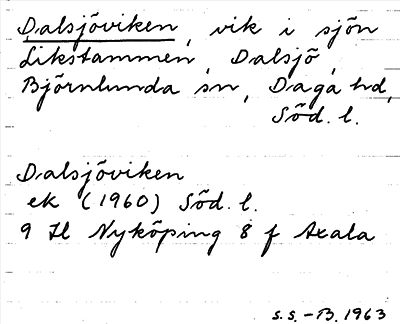 Dalsjöviken, vik i sjön
Likstammen, Dalsjö,
Björnlunda sn, Daga hd,
Söd. l.
Dalsjöviken
ek (1960) Söd. l.
9 H Nyköping 8 f Axala
S.S. – B. 1963